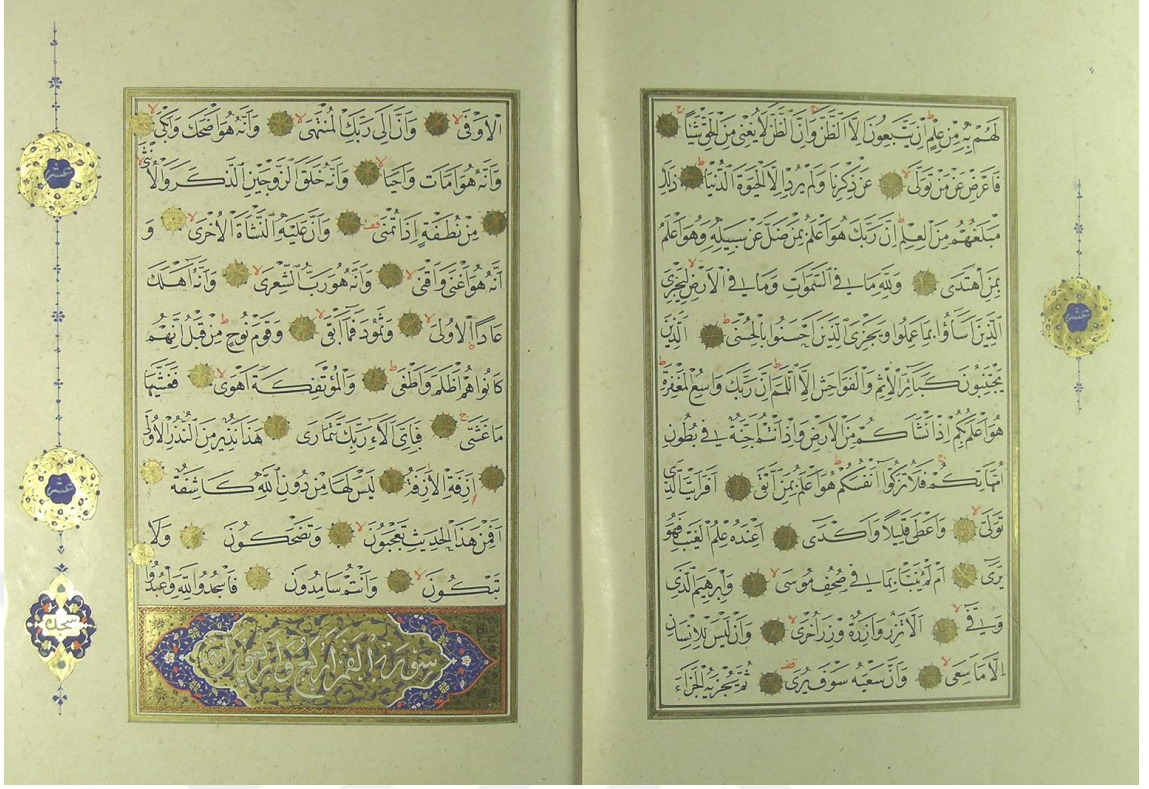 لَهُمْ بِهِ مِنْ عِلْمٍ اِنْ يَتَّبِعُونَ اِلَّا الظَّنَّ وَاِنَّ الظَّنَّ لَا يُغْنِى مِنَ الْحَقِّ شَيْئًا
فَاَعْرِضْ عَنْ مَنْ تَوَلّٰى عَنْ ذِكْرِنَا وَلَمْ يُرِدْ اِلَّا الْحَيٰوةَ الدُّنْيَا ذٰلِكَ
مَبْلَغُهُمْ مِنَ الْعِلْمِ اِنَّ رَبَّكَ هُوَ اَعْلَمُ بِمَنْ ضَلَّ عَنْ سَبِيلِهِ وَهُوَ اَعْلَمُ
بِمَنِ اهْتَدٰى وَلِلّٰهِ مَا فِى السَّمٰوَاتِ وَمَا فِى الْاَرْضِ لِيَجْزِىَ
الَّذِينَ اَسَاؤُا بِمَا عَمِلُوا وَيَجْزِىَ الَّذِينَ اَحْسَنُوا بِالْحُسْنٰى اَلَّذِينَ
يَجْتَنِبُونَ كَبَائِرَ الْاِثْمِ وَالْفَوَاحِشَ اِلَّا اللَّمَمَ اِنَّ رَبَّكَ وَاسِعُ الْمَغْفِرَةِ
هُوَ اَعْلَمُ بِكُمْ اِذْ اَنْشَاَكُمْ مِنَ الْاَرْضِ وَاِذْ اَنْتُمْ اَجِنَّةٌ فِى بُطُونِ
اُمَّهَاتِكُمْ فَلَا تُزَكُّوا اَنْفُسَكُمْ هُوَ اَعْلَمُ بِمَنِ اتَّقٰى اَفَرَاَيْتَ الَّذِى
تَوَلّٰى وَاَعْطٰى قَلِيلًا وَاَكْدٰى اَعِنْدَهُ عِلْمُ الْغَيْبِ فَهُوَ
يَرٰى اَمْ لَمْ يُنَبَّاْ بِمَا فِى صُحُفِ مُوسٰى وَاِبْرٰهِيمَ الَّذِى
وَفّٰى اَلَّا تَزِرُ وَازِرَةٌ وِزْرَ اُخْرٰى وَاَنْ لَيْسَ لِلْاِنْسَانِ
اِلَّا مَا سَعٰى وَاَنَّ سَعْيَهُ سَوْفَ يُرٰى ثُمَّ يُجْزٰيهُ الْجَزَاءَ
عشر
الْاَوْفٰى وَاَنَّ اِلٰى رَبِّكَ الْمُنْتَهٰى وَاَنَّهُ هُوَ اَضْحَكَ وَاَبْكٰى
وَاَنَّهُ هُوَ اَمَاتَ وَاَحْيَا وَاَنَّهُ خَلَقَ الزَّوْجَيْنِ الذَّكَرَ وَالْاُنْثٰى
مِنْ نُطْفَةٍ اِذَا تُمْنٰى وَاَنَّ عَلَيْهِ النَّشْاَةَ الْاُخْرٰى وَ
اَنَّهُ هُوَ اَغْنٰى وَاَقْنٰى وَاَنَّهُ هُوَ رَبُّ الشِّعْرٰى وَاَنَّهُ اَهْلَكَ
عَادًا الْاُولٰى وَثَمُودَ فَمَا اَبْقٰى وَقَوْمَ نُوحٍ مِنْ قَبْلُ اِنَّهُمْ
كَانُوا هُمْ اَظْلَمَ وَاَطْغٰى وَالْمُؤْتَفِكَةَ اَهْوٰى فَغَشّٰيهَا
مَا غَشّٰى فَبِاَىِّ اٰلَاءِ رَبِّكَ تَتَمَارٰى هٰذَا نَذِيرٌ مِنَ النُّذُرِ الْاُولٰى
اَزِفَةِ الْاٰزِفَةُ لَيْسَ لَهَا مِنْ دُونِ اللّٰهِ كَاشِفَةٌ
اَفَمِنْ هٰذَا الْحَدِيثِ تَعْجَبُونَ وَتَضْحَكُونَ وَلَا
تَبْكُونَ وَاَنْتُمْ سَامِدُونَ فَاسْجُدُوا لِلّٰهِ وَاعْبُدُوا
سورة القمر
عشر
عشر
سجده